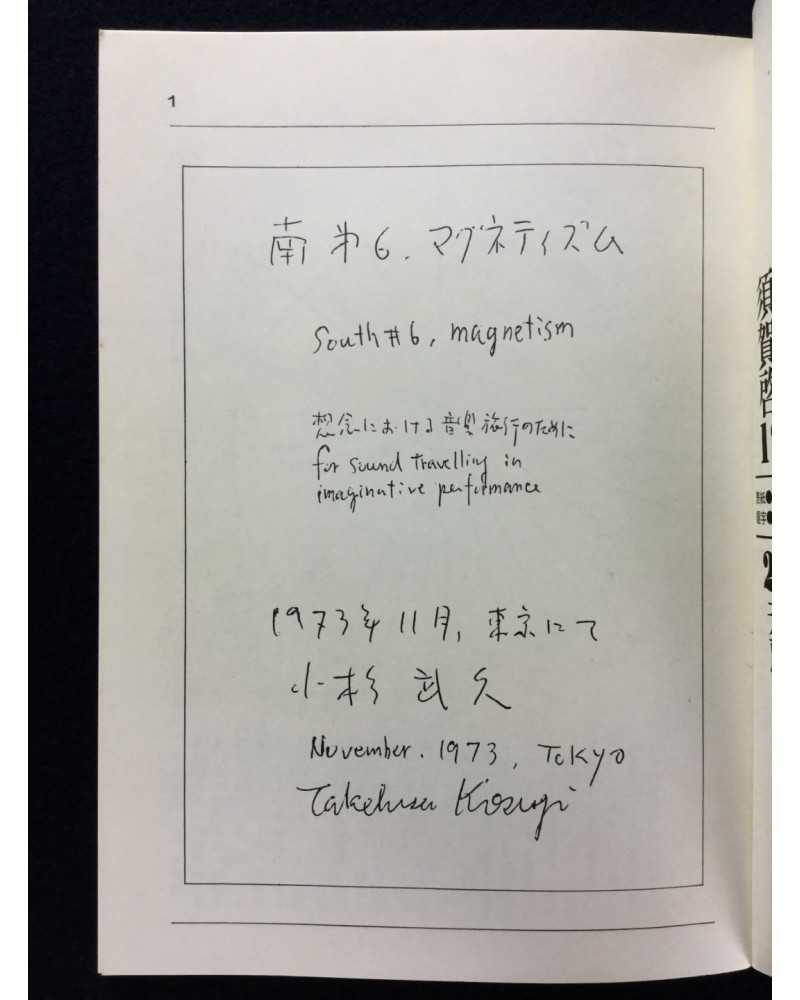 1
南 第6. マグネティズム
South #6, magnetism
想念における音楽旅行のために
for sound travelling in
imaginative performance
1973年11月, 東京にて
小杉 武久
November. 1973, Tokyo
Takehisa Kosugi
須賀啓
1
表紙●
題字●
2